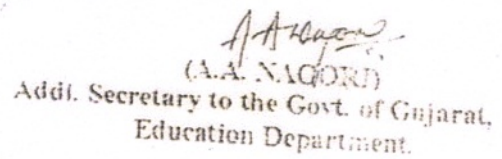 (A.A. NAGORI)
Addl. Secretary to the Govt. of Gujarat,
Education Department.